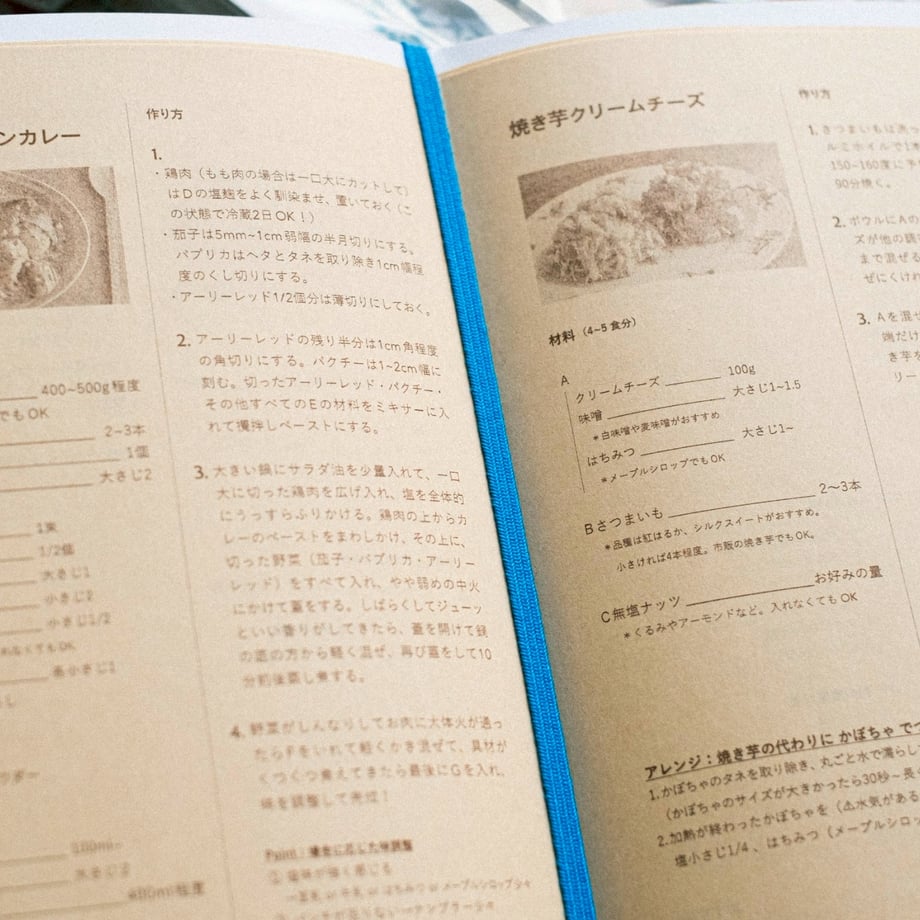 ンカレー
400~500g程度
でもOK
2~3本
1個
大さじ2
1束
1/2個
大さじ1
小さじ2
小さじ1/2
れなくてもOK
各小さじ1
作り方
1.
・鶏肉（もも肉の場合は一口大にカットして）
はDの塩麹をよく馴染ませ、置いておく（こ
の状態で冷蔵2日OK！）
・茄子は5mm~1cm弱幅の半月切りにする。
パプリカはヘタとタネを取り除き1cm幅程
度のくし切りにする。
・アーリーレッド1/2個分は薄切りにしておく。
2. アーリーレッドの残り半分は1cm角程度
の角切りにする。パクチーは1~2cm幅に
刻む。切ったアーリーレッド・パクチー・
その他すべてのEの材料をミキサーに入
れて攪拌しペーストにする。
3. 大きい鍋にサラダ油を少量入れて、一口
大に切った鶏肉を広げ入れ、塩を全体的
にうっすらふりかける。鶏肉の上からカ
レーのペーストをまわしかけ、その上に、
切った野菜（茄子・パプリカ・アーリー
レッド）をすべて入れ、やや弱めの中火
にかけて蓋をする。しばらくしてジューッ
といい香りがしてきたら、蓋を開けて鍋
の底の方から軽く混ぜ、再び蓋をして10
分前後蒸し煮する。
4. 野菜がしんなりしてお肉に大体火が通っ
たらFをいれて軽くかき混ぜて、具材が
くつくつ煮えてきたら最後にGを入れ、
味を調整して完成！
焼き芋クリームチーズ
材料（4~5食分）
A
クリームチーズ 100g
味噌 大さじ1~1.5
＊白味噌や麦味噌がおすすめ
はちみつ 大さじ1~
＊メープルシロップでもOK
Bさつまいも 2~3本
＊品種は紅はるか、シルクスイートがおすすめ。
小さければ4本程度。市販の焼き芋でもOK。
C無塩ナッツ お好みの量
＊くるみやアーモンドなど。入れなくてもOK
アレンジ：焼き芋の代わりに かぼちゃ で
1.かぼちゃのタネを取り除き、丸ごと水で濡らし
（かぼちゃのサイズが大きかったら30秒~長
2.加熱が終わったかぼちゃを（⚠水気がある
塩小さじ1/4、はちみつ（メープルシロッ
作り方
1. さつまいもは洗
ルミホイルで1本
150~160度に
90分焼く。
2. ボウルにAの
ズが他の調
まで混ぜる
ぜにくけれ
3. Aを混ぜ
端だけ
き芋を
リー